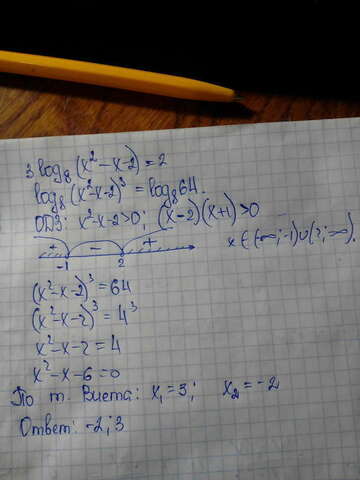 3 log₈(x²-x-2)=2
log₈(x²-x-2)³=log₈64.
ОДЗ: x²-x-2>0; (x-2)(x+1)>0
+ - +
-1 2 x∈(-∞;-1)∪(2;∞).
(x²-x-2)³=64
(x²-x-2)³=4³
x²-x-2=4
x²-x-6=0
По т. Виета: x₁=3; x₂=-2
Ответ: -2;3